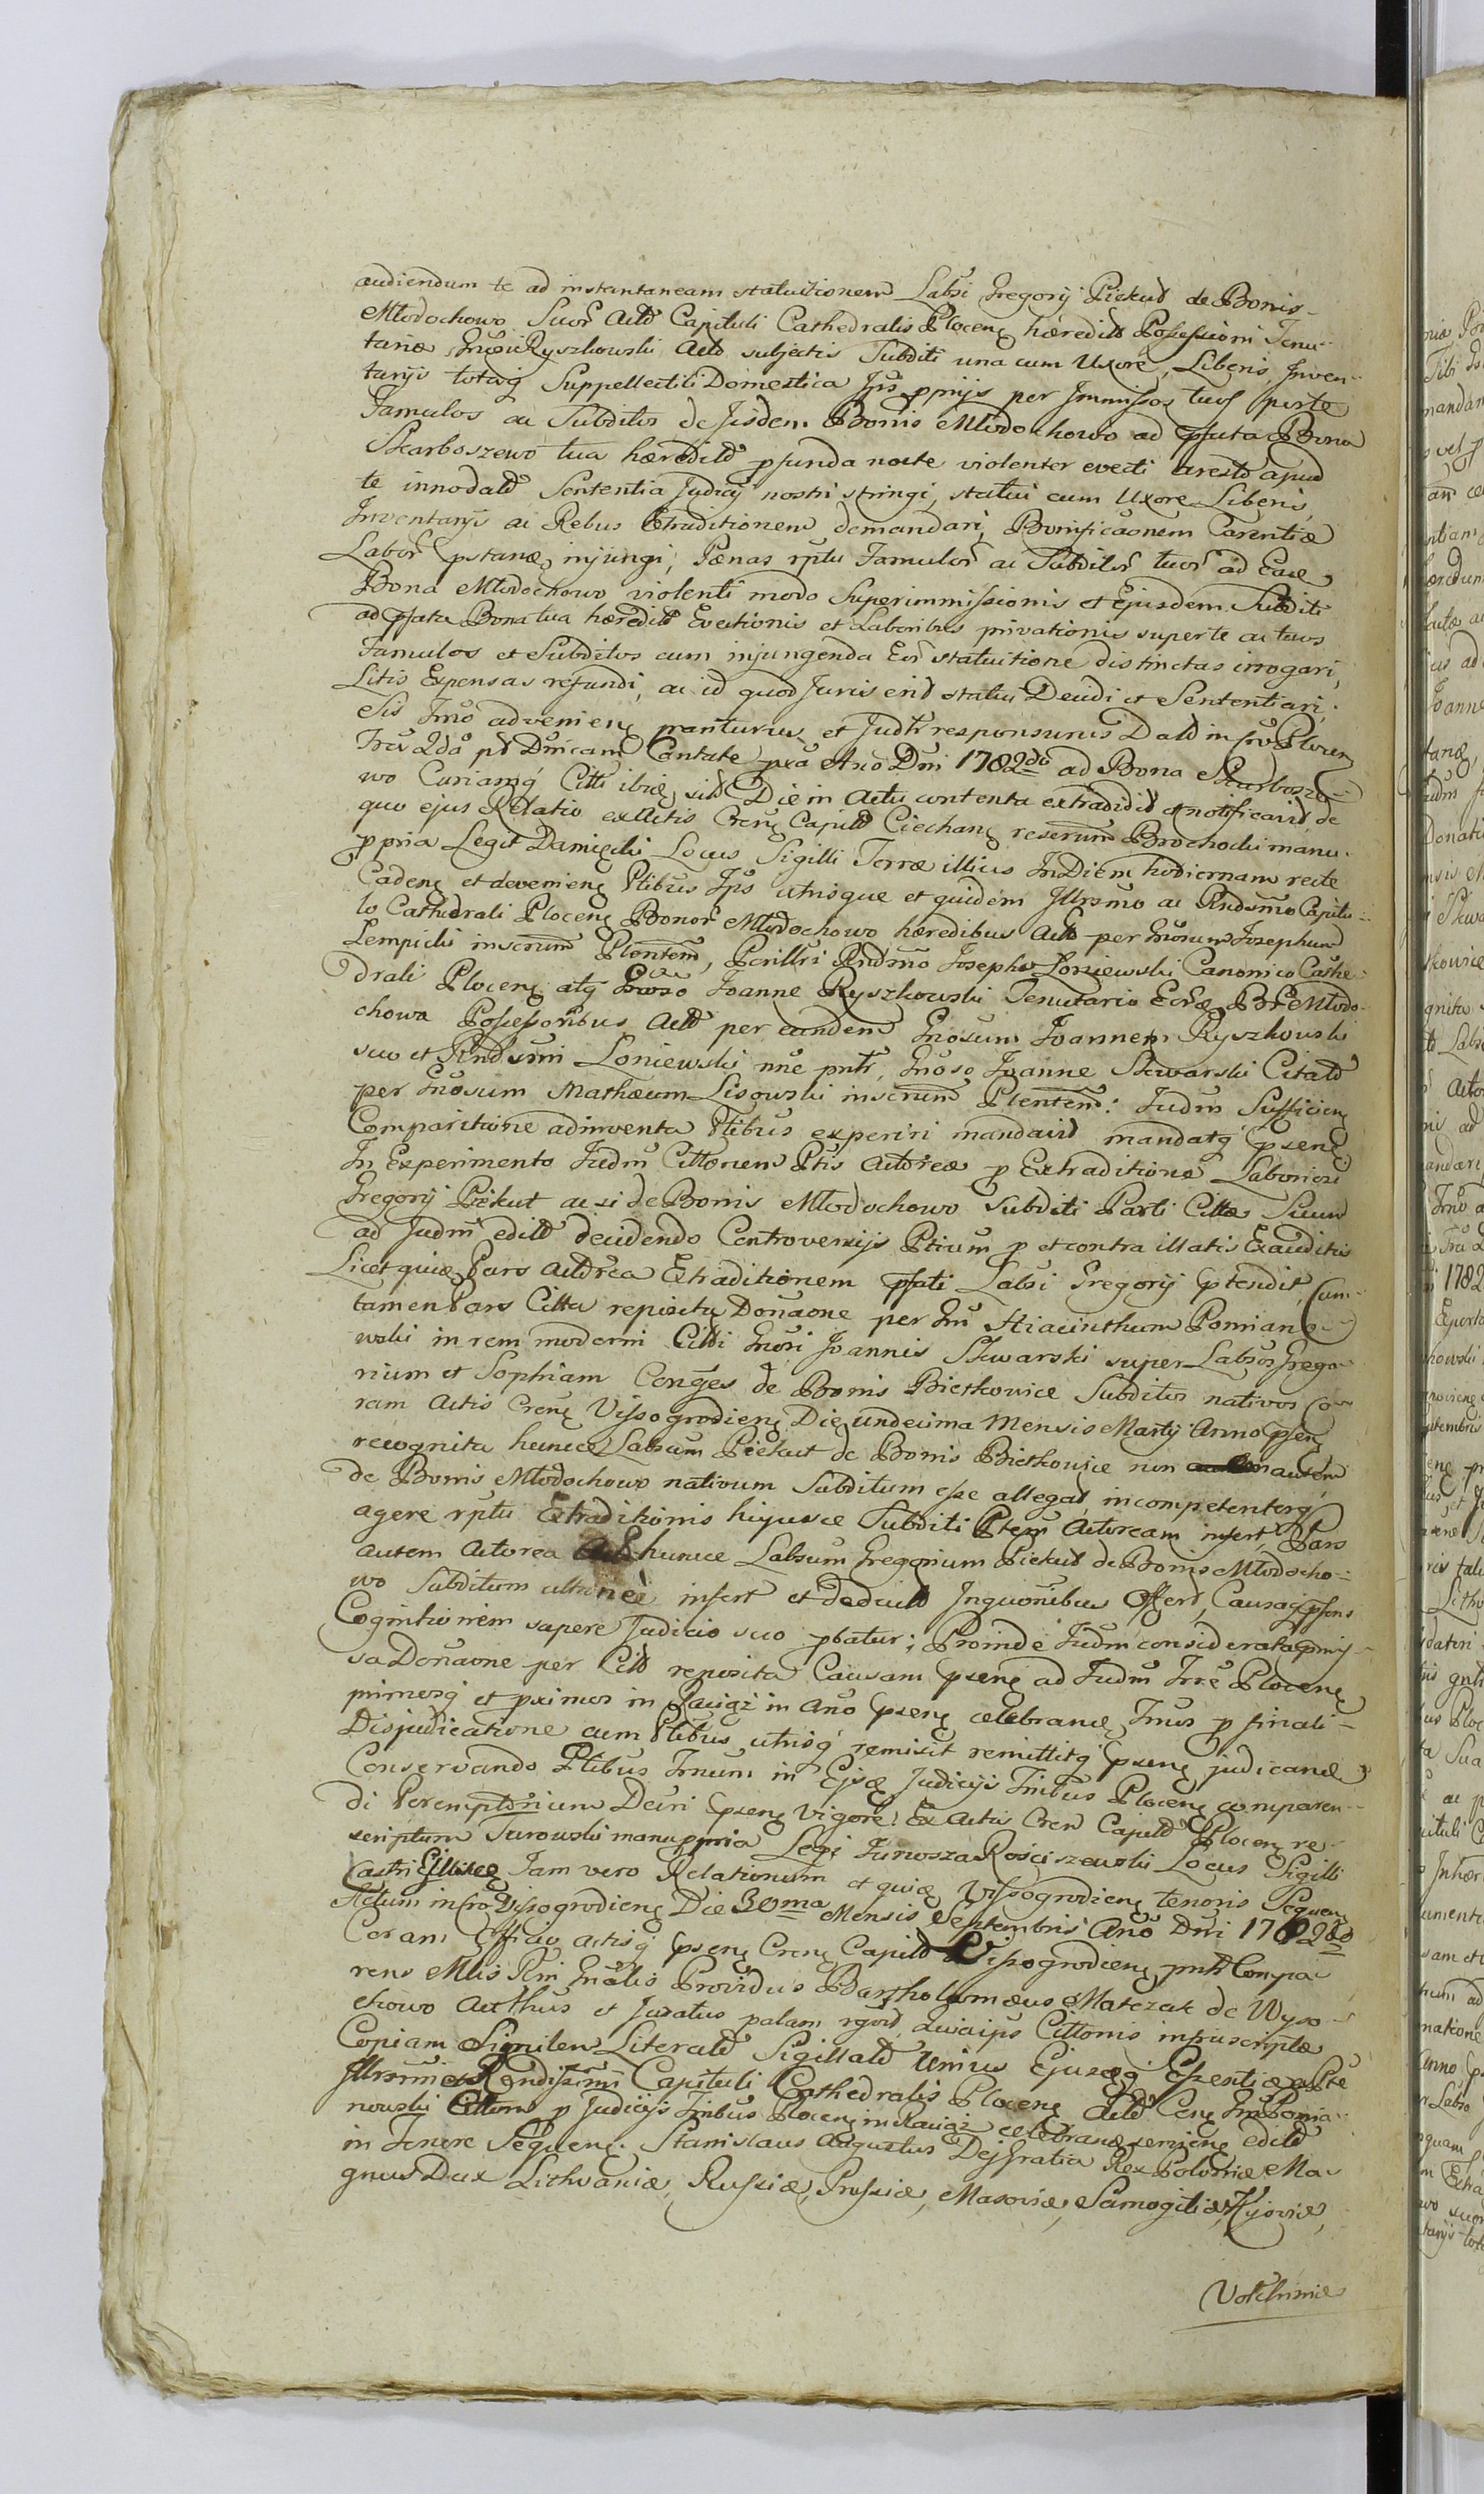 audiendum te ad instantaneam statuitionem Labsi Gregorij Piekut de Bonis
Młodochowo Suor Actd Capituli Cathedralis Plocens hæredit Possessioni Tenu-
tariæ Gnosi Ryszkowski Actd subjectis Subditi una cum Uxore, Liberis, Inven-
tarijs totaq Suppellectili Domestica Ips pprijs per Immissos tuos per te
Famulos ac Subditos de Jisdem Bonis Młodochowo ad pfata Bona
Skarboszewo tua hæredit pfunda nocte violenter evecti arestd apud
te innodatd Sententia Judicij nostri stringi, statui cum Uxore Liberis,
Inventarijs ac Rebus Extraditionem demandari, Bonificaonem Carentiæ
Labor pstanæ injungi, Pænas rptu Famulor ac Subditor tuor ad Eade
Bona Młodochowo violenti modo Superimmissionis et Ejusdem Subditi
ad pfata Bona tua hæredit Evectionis et Laboribus privationis super te ac tuos
Famulos et Subditos cum injungenda Eor statuitione distinctas irrogari,
Litis Expensas refundi, ac id quod Juris erit statui Decidi et Sententiari;
Sis Trno adveniens pariturus et Judtr responsurus Datd in Cro Plocen
Fria 2da pt Dnicam Cantate pxa Ano Dni 1782do ad Bona Skarbosze-
wo Curiamq Citti ibiq sitd Die in Actu contenta extradidit et notificavit, de
quo ejus Relatio ex Actis Crens Capitd Ciechans reserum Brochocki manu
ppria Legit Damięcki Locus Sigilli Terræ illius In Diem hodiernam recte
Cadens et deveniens Ptibus Ips utrisque et quidem Illrsmo ac Rndsmo Capitu-
lo Cathedrali Plocens Bonor Młodochowo hæredibus Actd per Gnosum Josephum
Lempicki inscrum Plentem, Perillri Rndmo Josepho Loniewski Canonico Cathe-
drali Plocens atq Gnoso Joanne Ryszkowski Tenutario Eorde Br Młodo-
chowa Possessoribus Actd per eundem Gnosum Joannem Ryszkowski
suo et Rndsmi Loniewski nne pntr, Gnoso Joanne Skwarski Citatd
per Gnosum Mathæum Lisowski inscrum Plentem: Judm Sufficien
Comparitione adinventa Ptibus experiri mandavit mandatq psens
In Experimento Judm Cittonem Ptis Actoreæ p Extraditione Laboriosi
Gregorij Piekut ac si de Bonis Młodochowo Subditi Parti Cittæ Suum
ad Judm editd decidendo Controversijs Ptium p et contra illatis Exauditis
Licet quia Pars Actorea Extraditionem pfati Labsi Gregorij ptendit, Cum
tamen Pars Citta reposita Donaone per Gm Hiacinthum Pomiano-
wski in rem moderni Citti Gnosi Joannis Skwarski super Labsos Grego-
rium et Sophiam Conges de Bonis Bietkowice Subditos nativos Co-
ram Actis Crens Vissogrodiens Die undecima Mensis Martij Anno psen
recognita hunce Labsum Piekut de Bonis Bietkowice non autem
de Bonis Młodochowo nativum Subditum esse allegat incompetenterq
agere rptu Extraditionis hujusce Subditi Ptem Actoream infert, Pars
autem Actorea hunce Labsum Gregorium Piekut de Bonis Młodocho-
wo Subditum ultronee infert et Deducit Inquonibus Offert, Causaq psens
Cognitionem sapere Judicio suo pbatur; Proinde Judm considerata pmis-
sa Donaone per Citd reposita Causam psens ad Judm Trre Plocens
primosq et pximos in Raciąż in Ano psens celebrand Trnos p finali-
Disjudicatione cum Ptibus utrisq remisit remittitq psens judicand
Conservando Ptibus Trnum in Ejsd Judicijs Trribus Plocens comparen-
di Peremptorium Decri psens vigore. Ex Actis Cren Capitd Plocens re-
scriptum Turowski manu ppria Legi Junosza Rościszewski Locus Sigilli
Castri Illius Jam vero Relationum et quid Vissogrodiens tenoris Sequen
Actum in Cro Vissogrodiens Die 30ma Mensis Septembris Ano Dni 1782do
Coram Officio actisq psens Crens Capitd Vissogrodiens pntr Compa-
rens Mtis Rm Gnalis Providus Bartholomæus Matczak de Wyso-
chowo Authus et Juratus palam rgvit, quia ips Cittonis infrascriptæ
Copiam Similem Literatd Sigillatd Unius Ejusdq Essentiæ a Pte
Illrsmi et Rendissimi Capituli Cathedralis Plocens Actd Cens Gm Pomia-
nowski Cittum p Judicijs Trribus Plocens in Raciąż celebrand serviens editd
in Tenore Sequens. Stanislaus Augustus Dej Gratia Rex Poloniæ Ma-
gnus Dux Lithvaniæ, Russiæ, Prussiæ, Masoviæ, Samogitiæ, Kijoviæ,
Volchiniæ